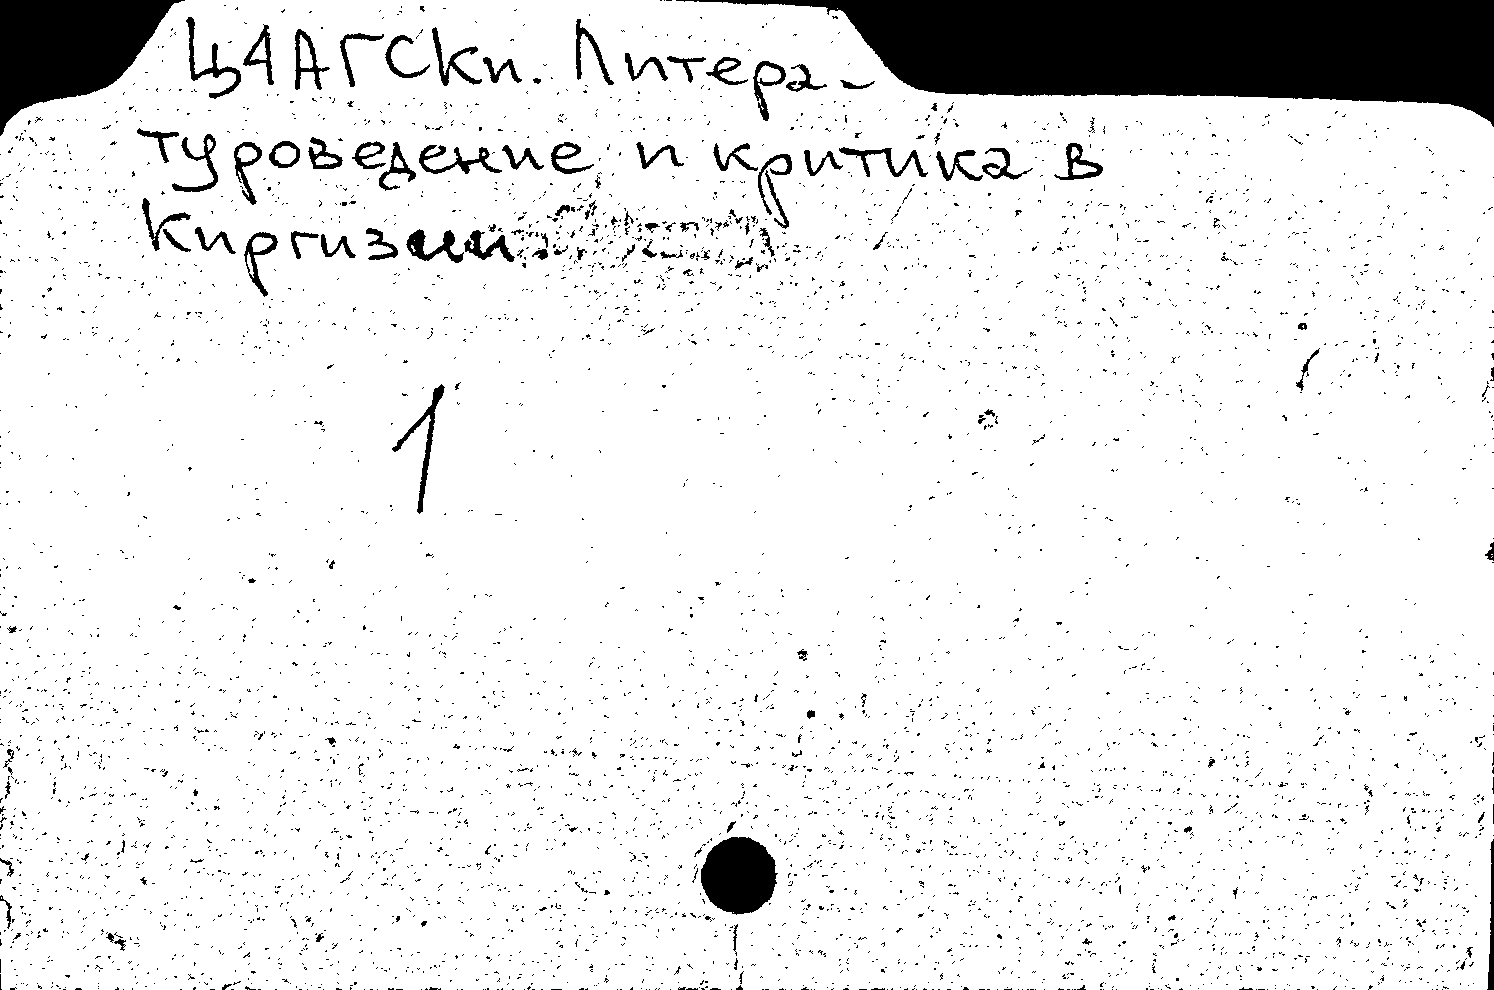 Ц4АГСКи. Литера-
туроведение и критика в
Киргизии.
1